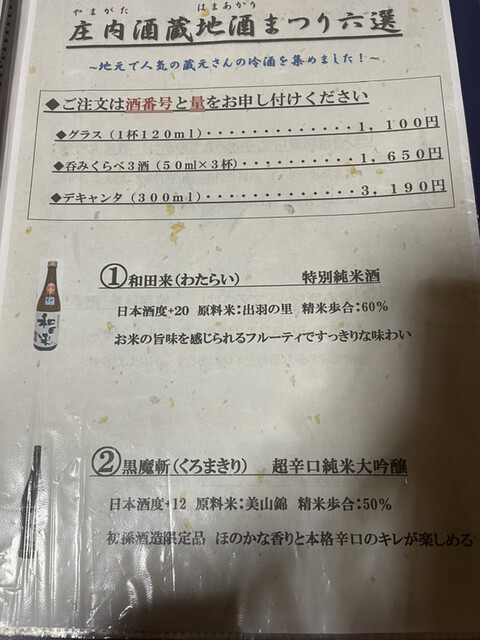 やまがた はまあかり
庄内酒蔵地酒まつり六選
～地元で人気の蔵元さんの冷酒を集めました！～
◆ご注文は酒番号と量をお申し付けください
◆グラス（1杯120ml）・・・・・・・・・・・・・1，100円
◆呑みくらべ3酒（50ml×3杯）・・・・・・・・・・1，650円
◆デキャンタ（300ml）・・・・・・・・・・・・・3，190円
①和田来（わたらい） 特別純米酒
日本酒度+20 原料米：出羽の里 精米歩合：60%
お米の旨味を感じられるフルーティですっきりな味わい
②黒魔斬（くろまきり） 超辛口純米大吟醸
日本酒度+12 原料米：美山錦 精米歩合：50%
初孫酒造限定品 ほのかな香りと本格辛口のキレが楽しめる